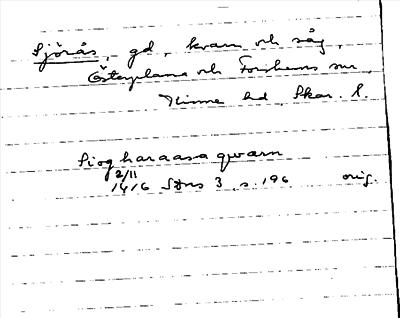 Sjörås, gd, kvarn och såg,
Österplana och Forshems snr,
Kinne hd, Skar. l.
Siogharaasa qwarn
2/11
1416 SDns 3, s. 196 orig.